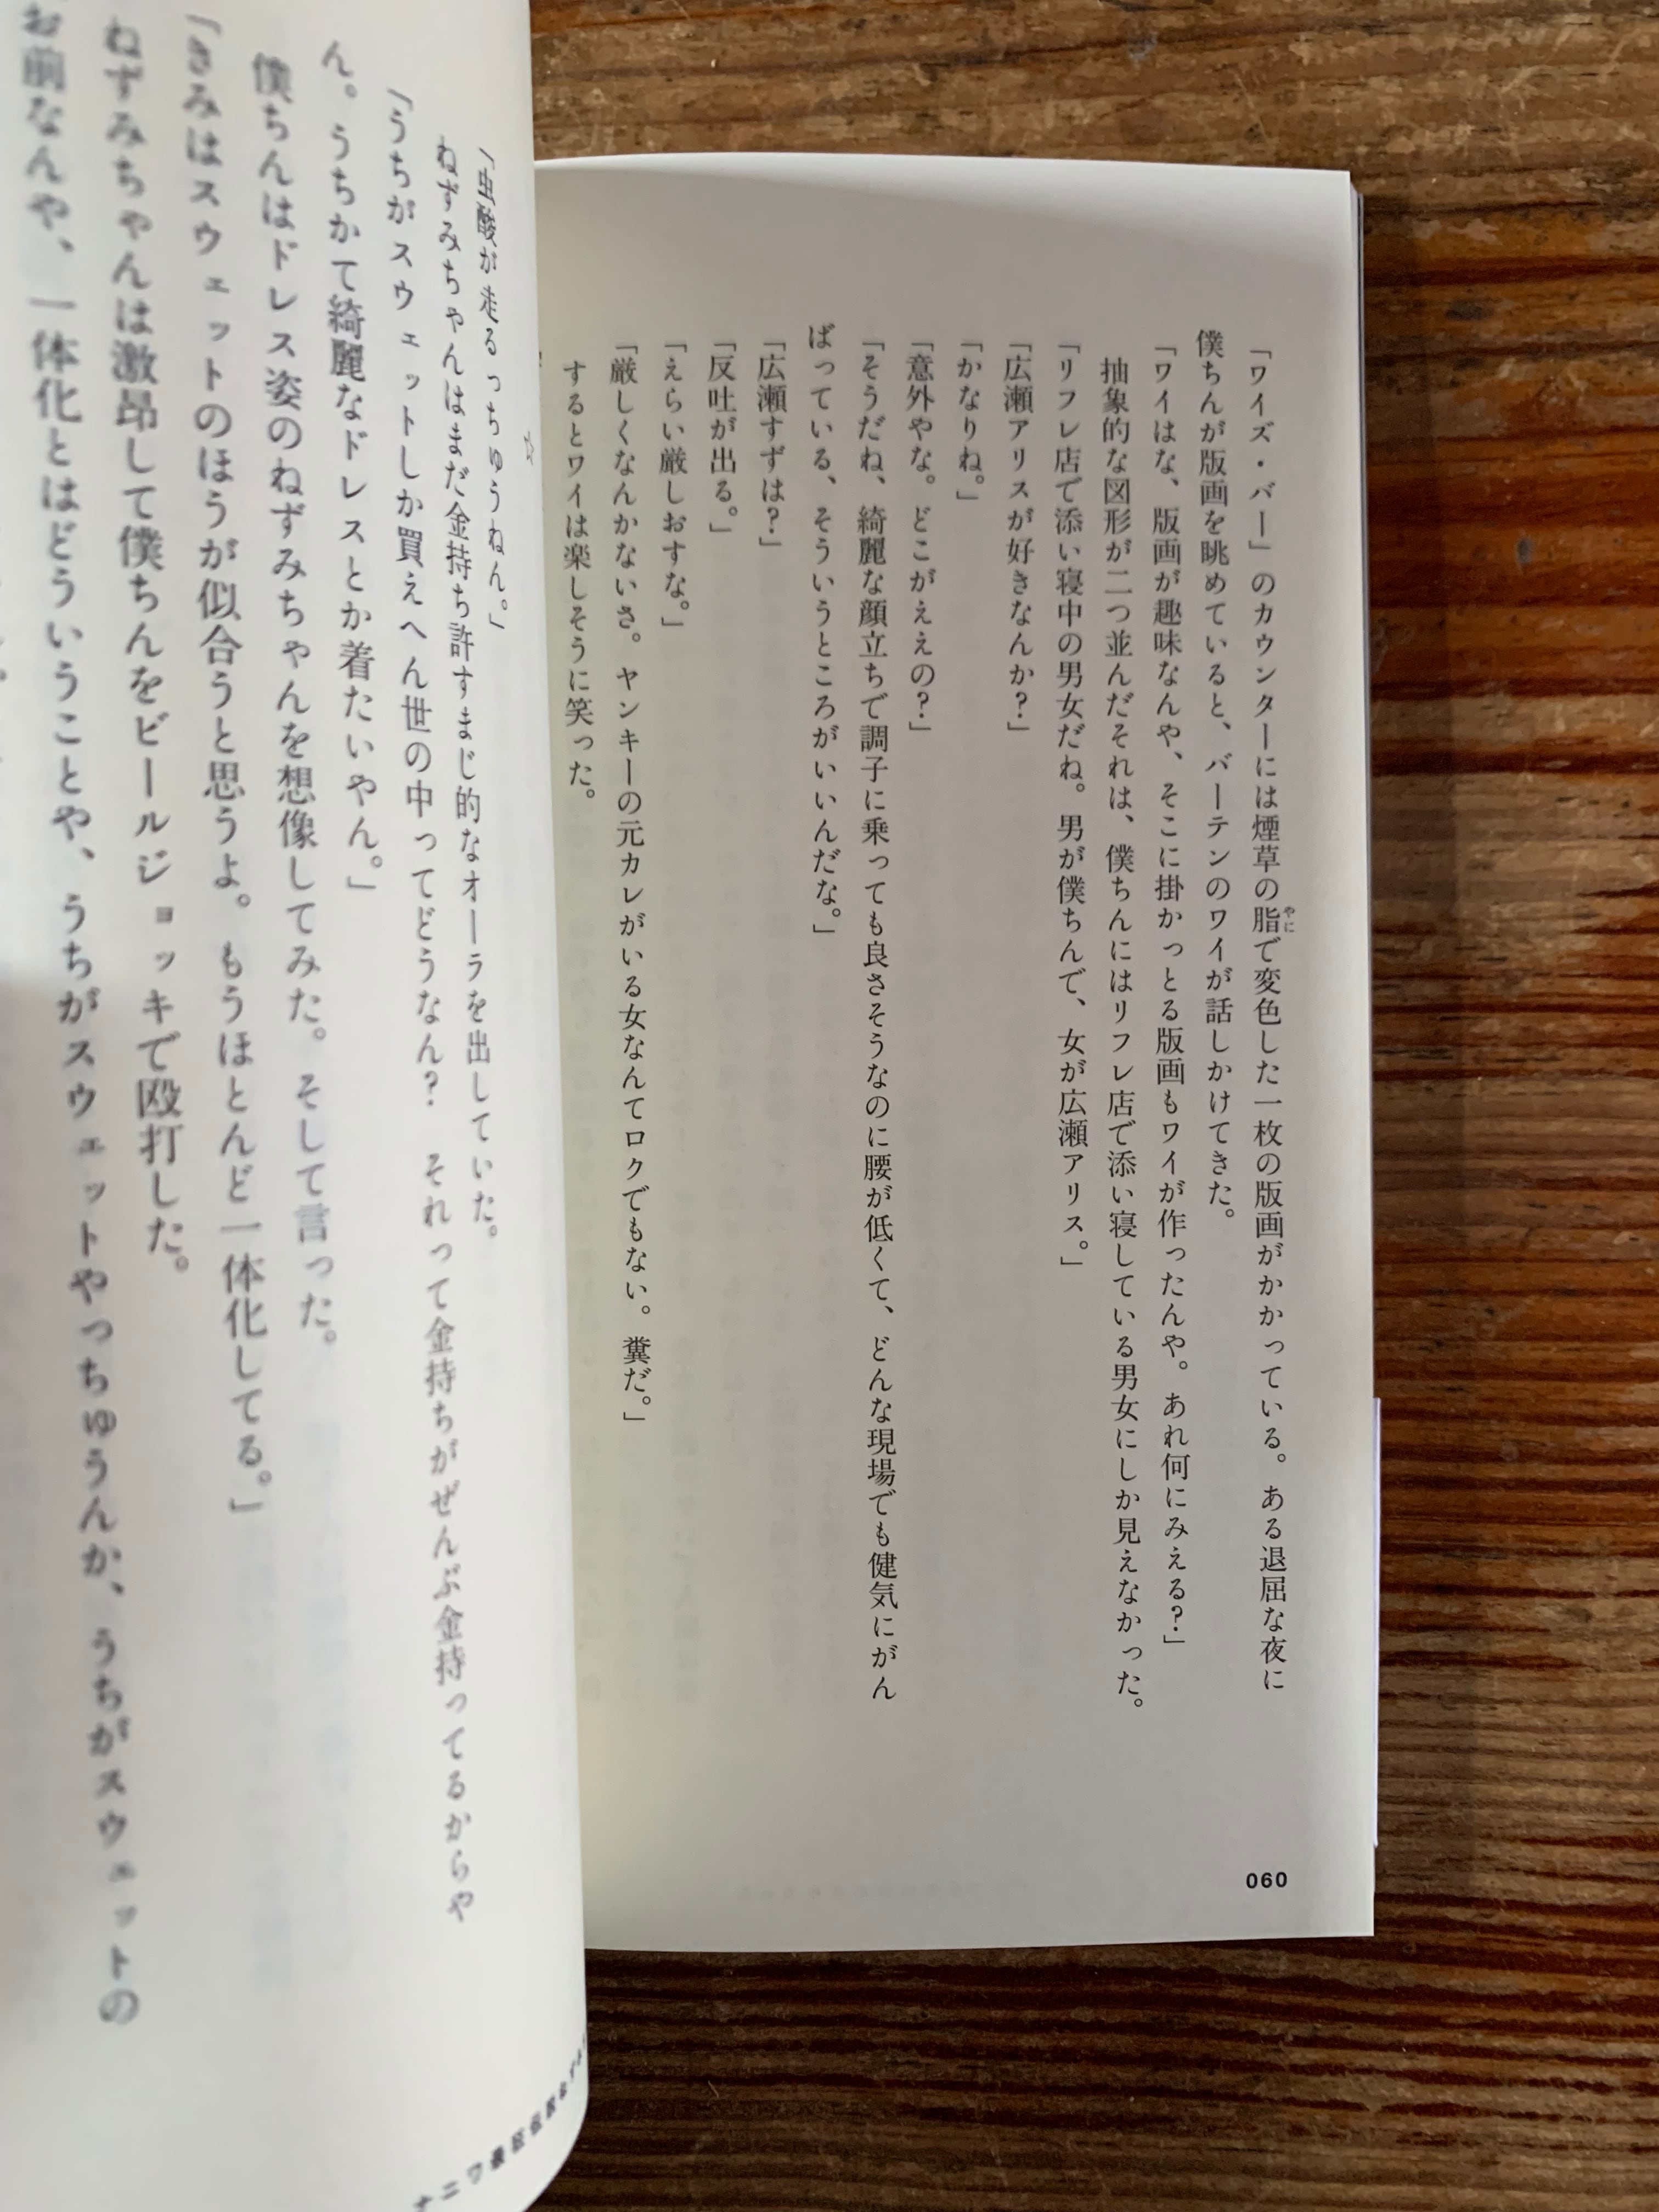 「ワイズ・バー」のカウンターには煙草の脂で変色した一枚の版画がかかっている。ある退屈な夜に
やに
僕ちんが版画を眺めていると、バーテンのワイが話しかけてきた。
「ワイはな、版画が趣味なんや、そこに掛かっとる版画もワイが作ったんや。あれ何にみえる?」
抽象的な図形が二つ並んだそれは、僕ちんにはリフレ店で添い寝している男女にしか見えなかった。
「リフレ店で添い寝中の男女だね。男が僕ちんで、女が広瀬アリス。」
「広瀬アリスが好きなんか?」
「かなりね。」
「意外やな。どこがええの?」
「そうだね、綺麗な顔立ちで調子に乗っても良さそうなのに腰が低くて、どんな現場でも健気にがん
ばっている、そういうところがいいんだな。」
「広瀬すずは?」
「反吐が出る。」
「えらい厳しおすな。」
「厳しくなんかないさ。ヤンキーの元カレがいる女なんてロクでもない。糞だ。」
するとワイは楽しそうに笑った。
060
☆
「虫酸が走るっちゅうねん。」
ねずみちゃんはまだ金持ち許すまじ的なオーラを出していた。
「うちがスウェットしか買えへん世の中ってどうなん? それって金持ちがぜんぶ金持ってるからや
ん。うちかて綺麗なドレスとか着たいやん。」
僕ちんはドレス姿のねずみちゃんを想像してみた。そして言った。
「きみはスウェットのほうが似合うと思うよ。もうほとんど一体化してる。」
ねずみちゃんは激昂して僕ちんをビールジョッキで殴打した。
お前なんや、一体化とはどういうことや、うちがスウェットやっちゅうんか、うちがスウェットの